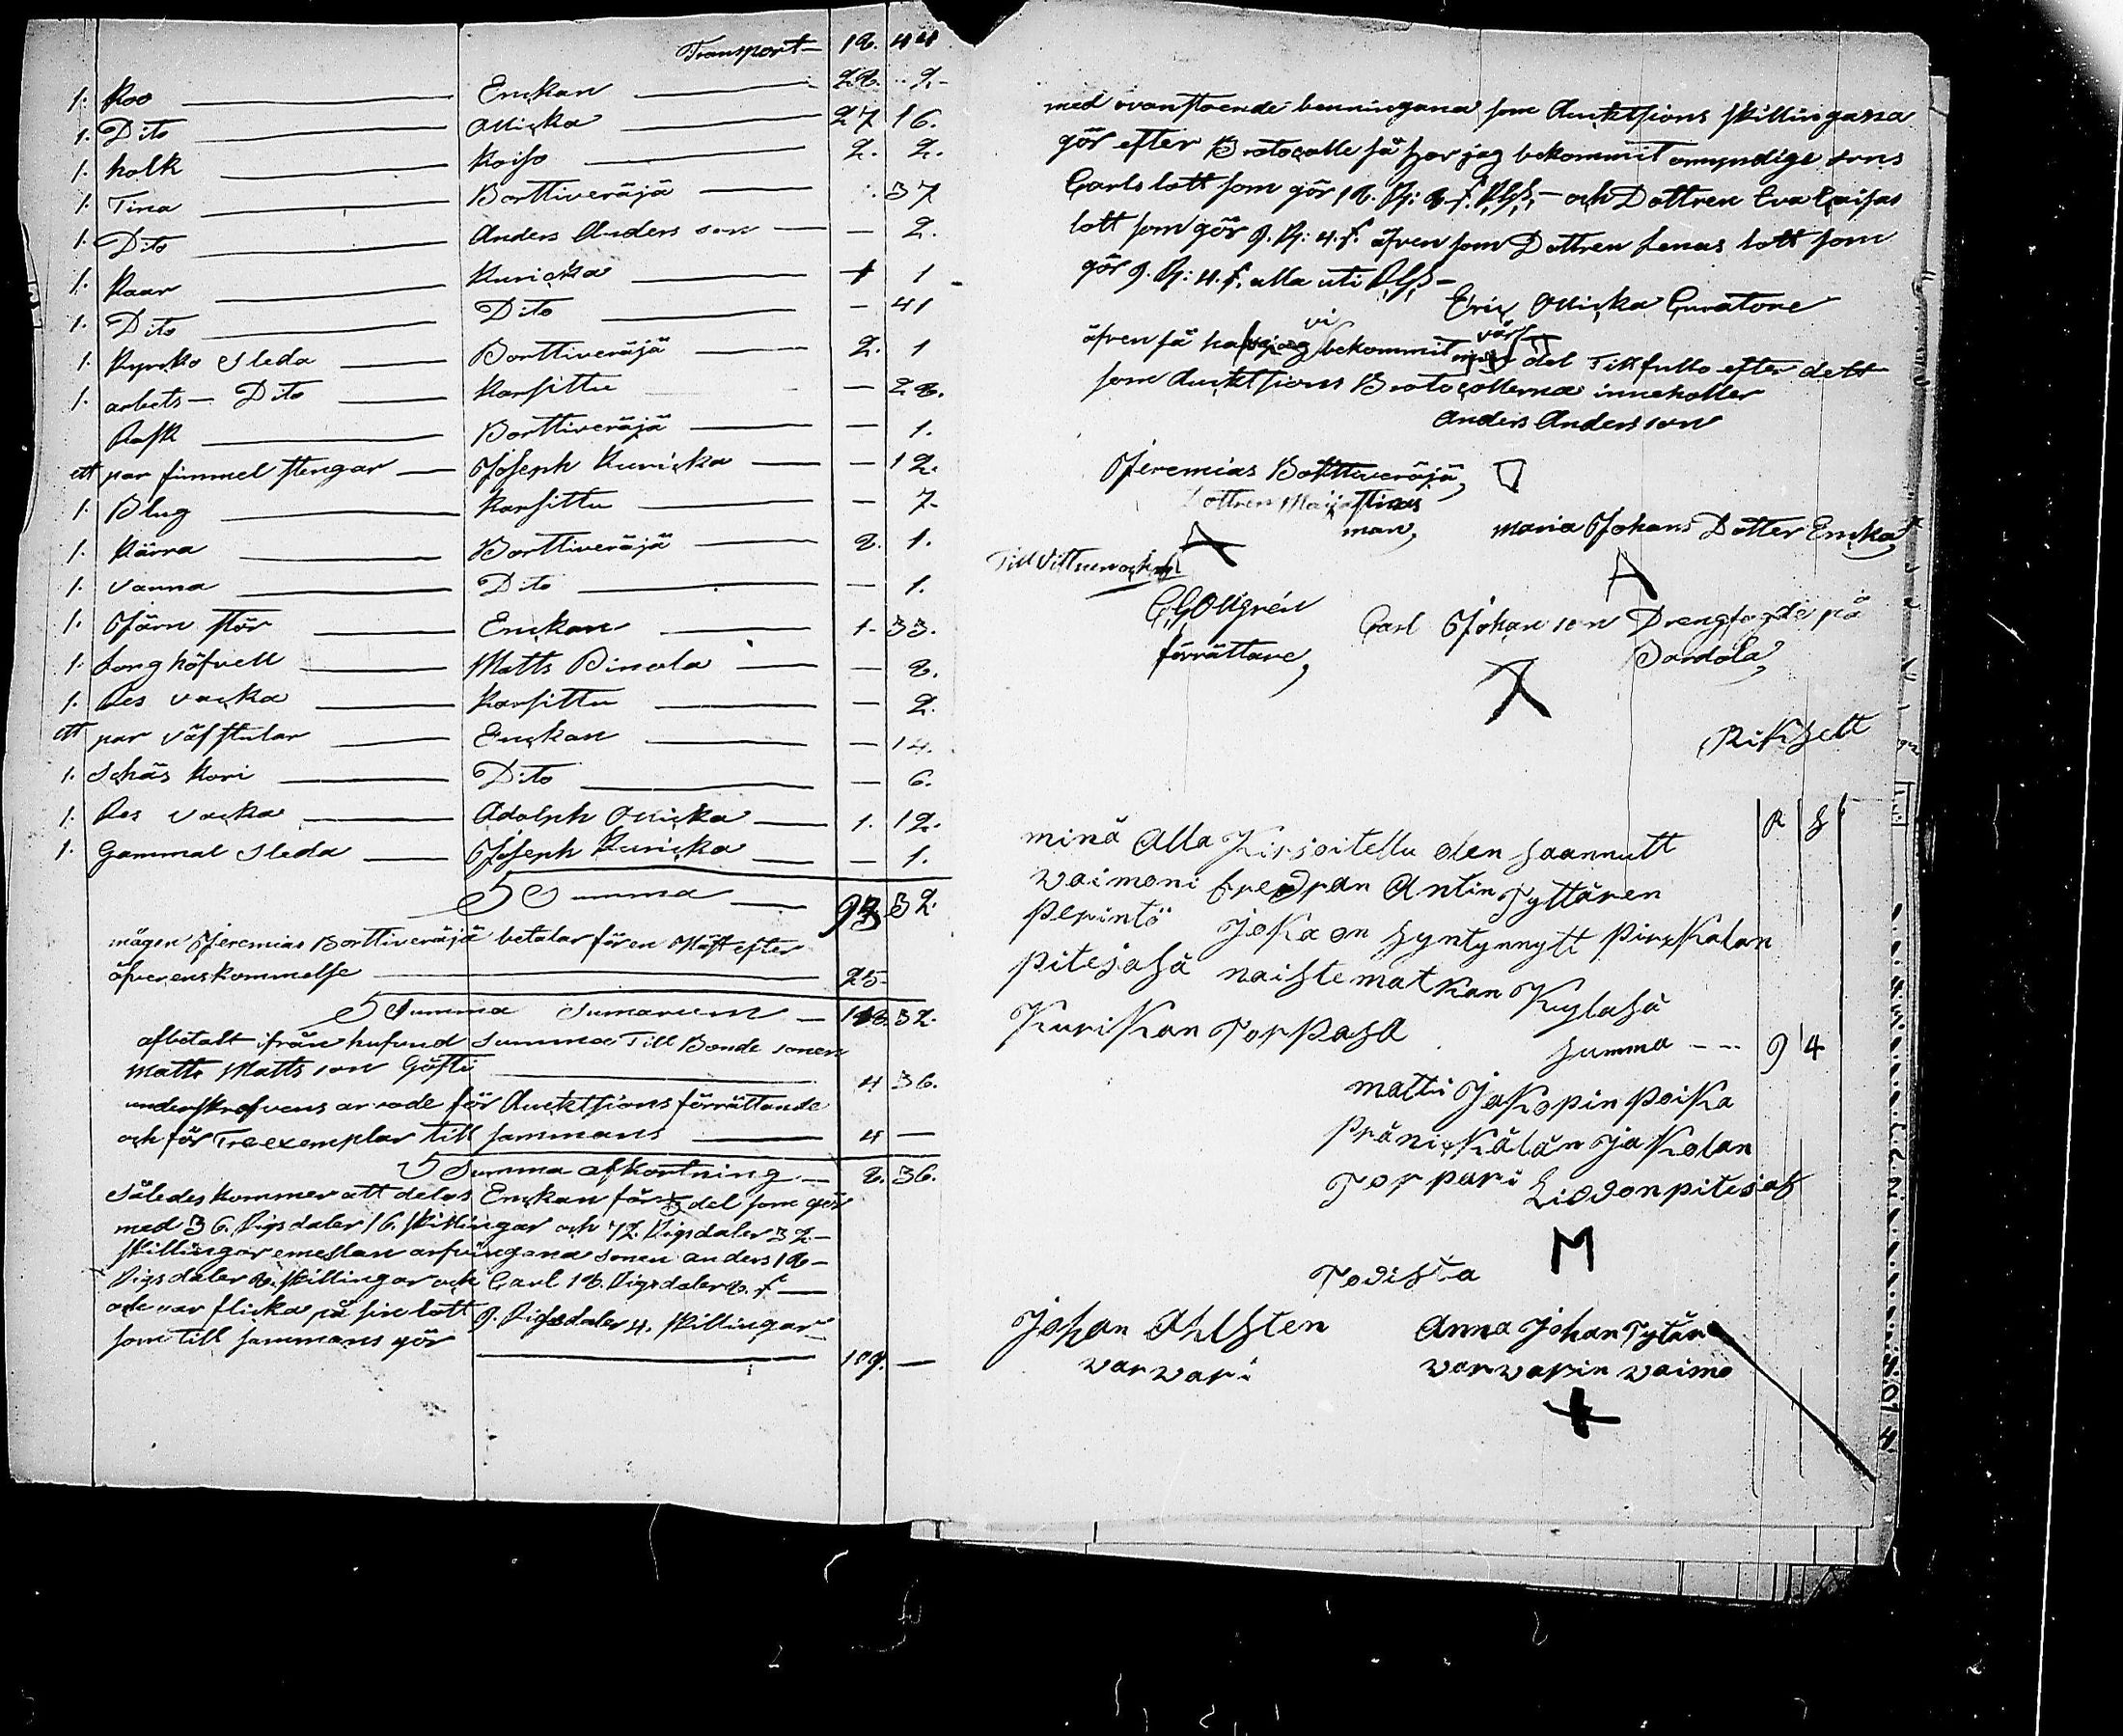 Transport 18. 44
1. Koo Enckan 28. 2.
1. Dito Ollicka 27 16.
1. holk Koiso 2. 2.
1. Tina Borttiveräjä 37
1. Dito Anders Anders son — 2.
1. Kaar Kuricka 1 1
1. Dito Dito — 41
1. Kyrcko Sleda Borttiveräjä 2. 1
1. arbets Dito Karsittu — 28.
Rask Borttiveräjä — 1.
ett par fimmel stengar Joseph Kuricka — 12.
1. Blug Karsittu — 7.
1. Kärra Borttiveräjä 2. 1.
1. Vanna Dito — 1.
1. Järn stör Enckan 1. 33.
1. Long höfvell Matts — 8.
1. Res vacka Karsittu — 2.
ett par väfstular Enckan — 14.
1. Schäs Kori Dito — 6.
1. Res vacka Adolph Ollicka 1. 12.
1. Gammal Sleda Joseph Kuricka — 1.
Summa 93 32.
mågen Jeremias Borttiveräjä betalar för en Häst efter
öfverenskommelse 25
Summa Sumarum 118. 32.
afbetalt ifrån hufvud Summa Till Bonde sonen
Matts Matts son Göfti 4 36.
underskrefvens arvode för Aucktsions förrättande
och för Tre exemplar till sammans 4 —
Summa afkortning 8. 36.
således kommer att delas Enckan för ⅓ del som gör
med 36. Rigsdaler 16. Skillingar och 72. Rigsdaler 32
Skillingar emellan arfvingana sonen anders 18
Rigsdaler 8. Skillingar och Carl 18. Rigsdaler 8. s
och var flicka på sin lott 9. Rigsdaler 4. Skillingar
som till sammans gör 109. —
med ovanstoende som Aucktsions skillingarna
gör efter Protocolle så har jag bekommit omyndige sons
Carls lott som gör 18. R: 8 s. och Dottren Eva Caisas
lott som gör 9. R: 4. s. äfven som Dottren Lenas lott som
gör 9. R: 4. s. alla uti
Eric Ollicka Curatore
äfven så hafva vi bekommit vår del Till fullo efter dett
som Aucktsions Protocollerna inneholler
Anders Anders son
Jeremias Borttiveräjä
Dottren Maijastinas
man
Maria Johans Dotter Encka
Till Vittne
C G Ollgrén
förrättare
Carl Johan son Drengfogde på
Dardola
RiKsell
R S
minä Alla Kirjoitettu olen saannutt
waimoni Fredran Antin Tyttären
Perintö JoKa on syntynnytt PirKKalan
Pitejäsä naistematkan Kyläsä
KuriKKan TorPasa
Summa 9 4
matti JaKopin PoiKa
Torpari
M
Todista
Johan Ahlsten
warwari
Anna Johan Tytär
warwarin waimo